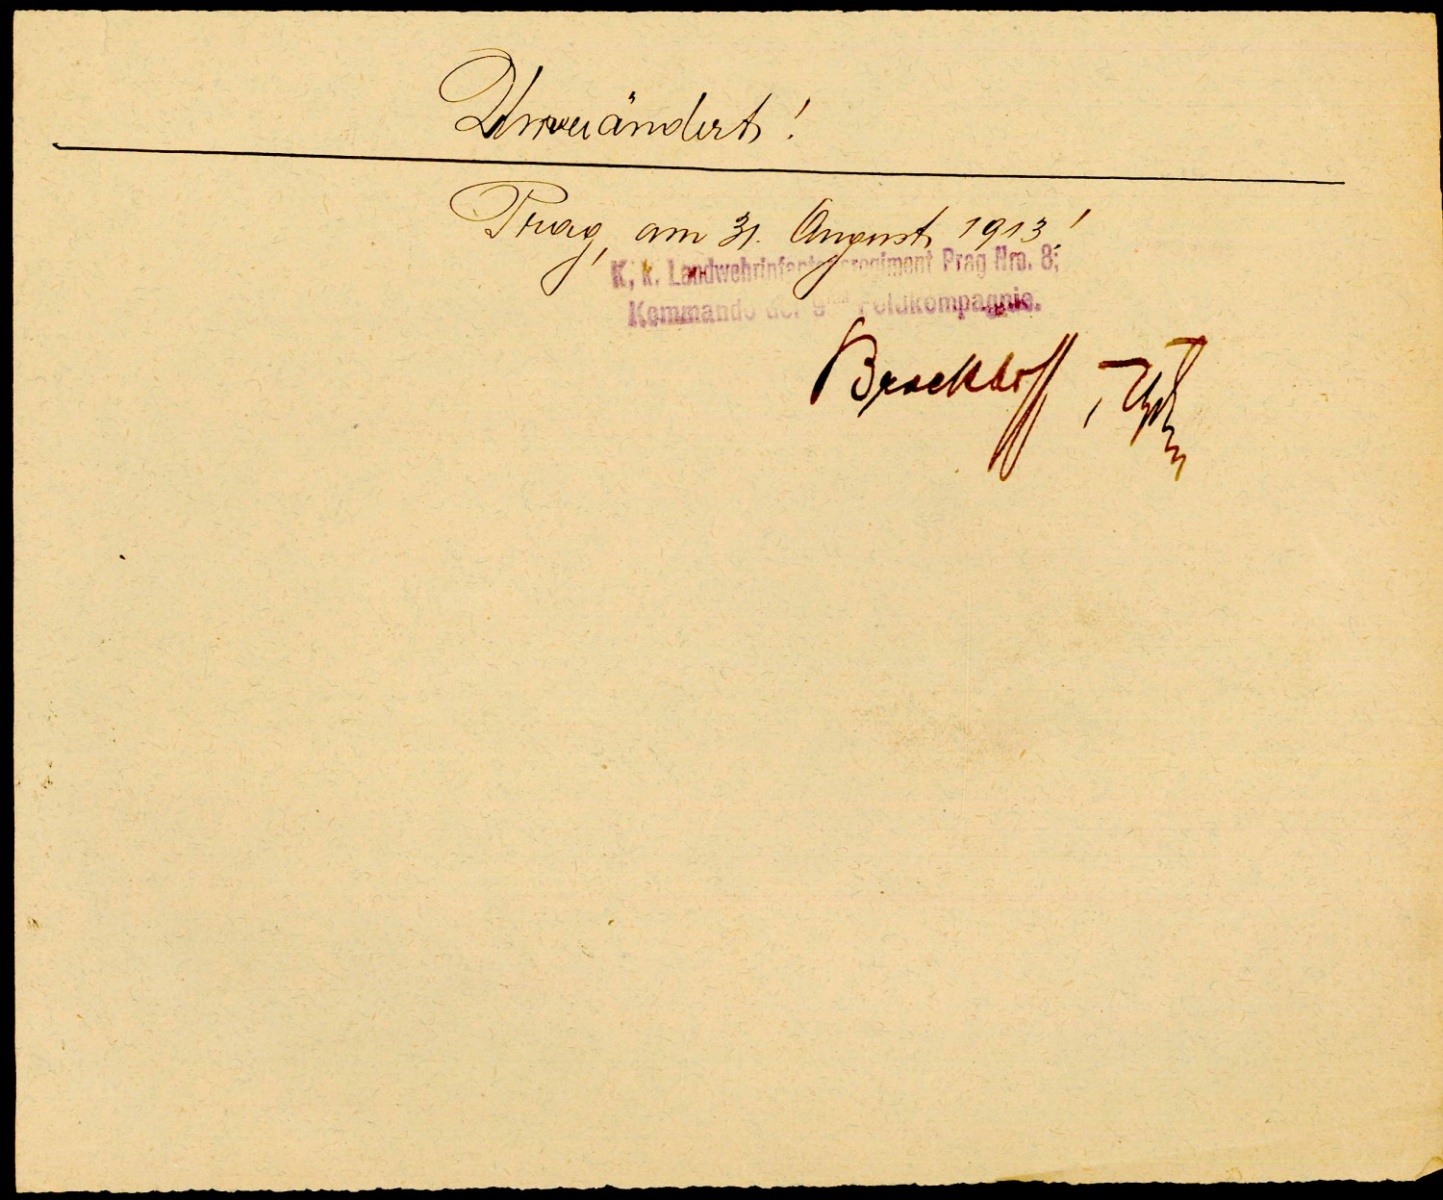 Unverändert!
Prag, am 31. August 1913!
K. k. Landwehrinfanterieregiment Prag Nro. 8;
Kommando der 9ten Feldkompagnie.
Brockhoff,